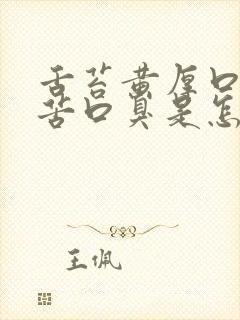 舌苔黄厚口
苦口臭是怎
王佩